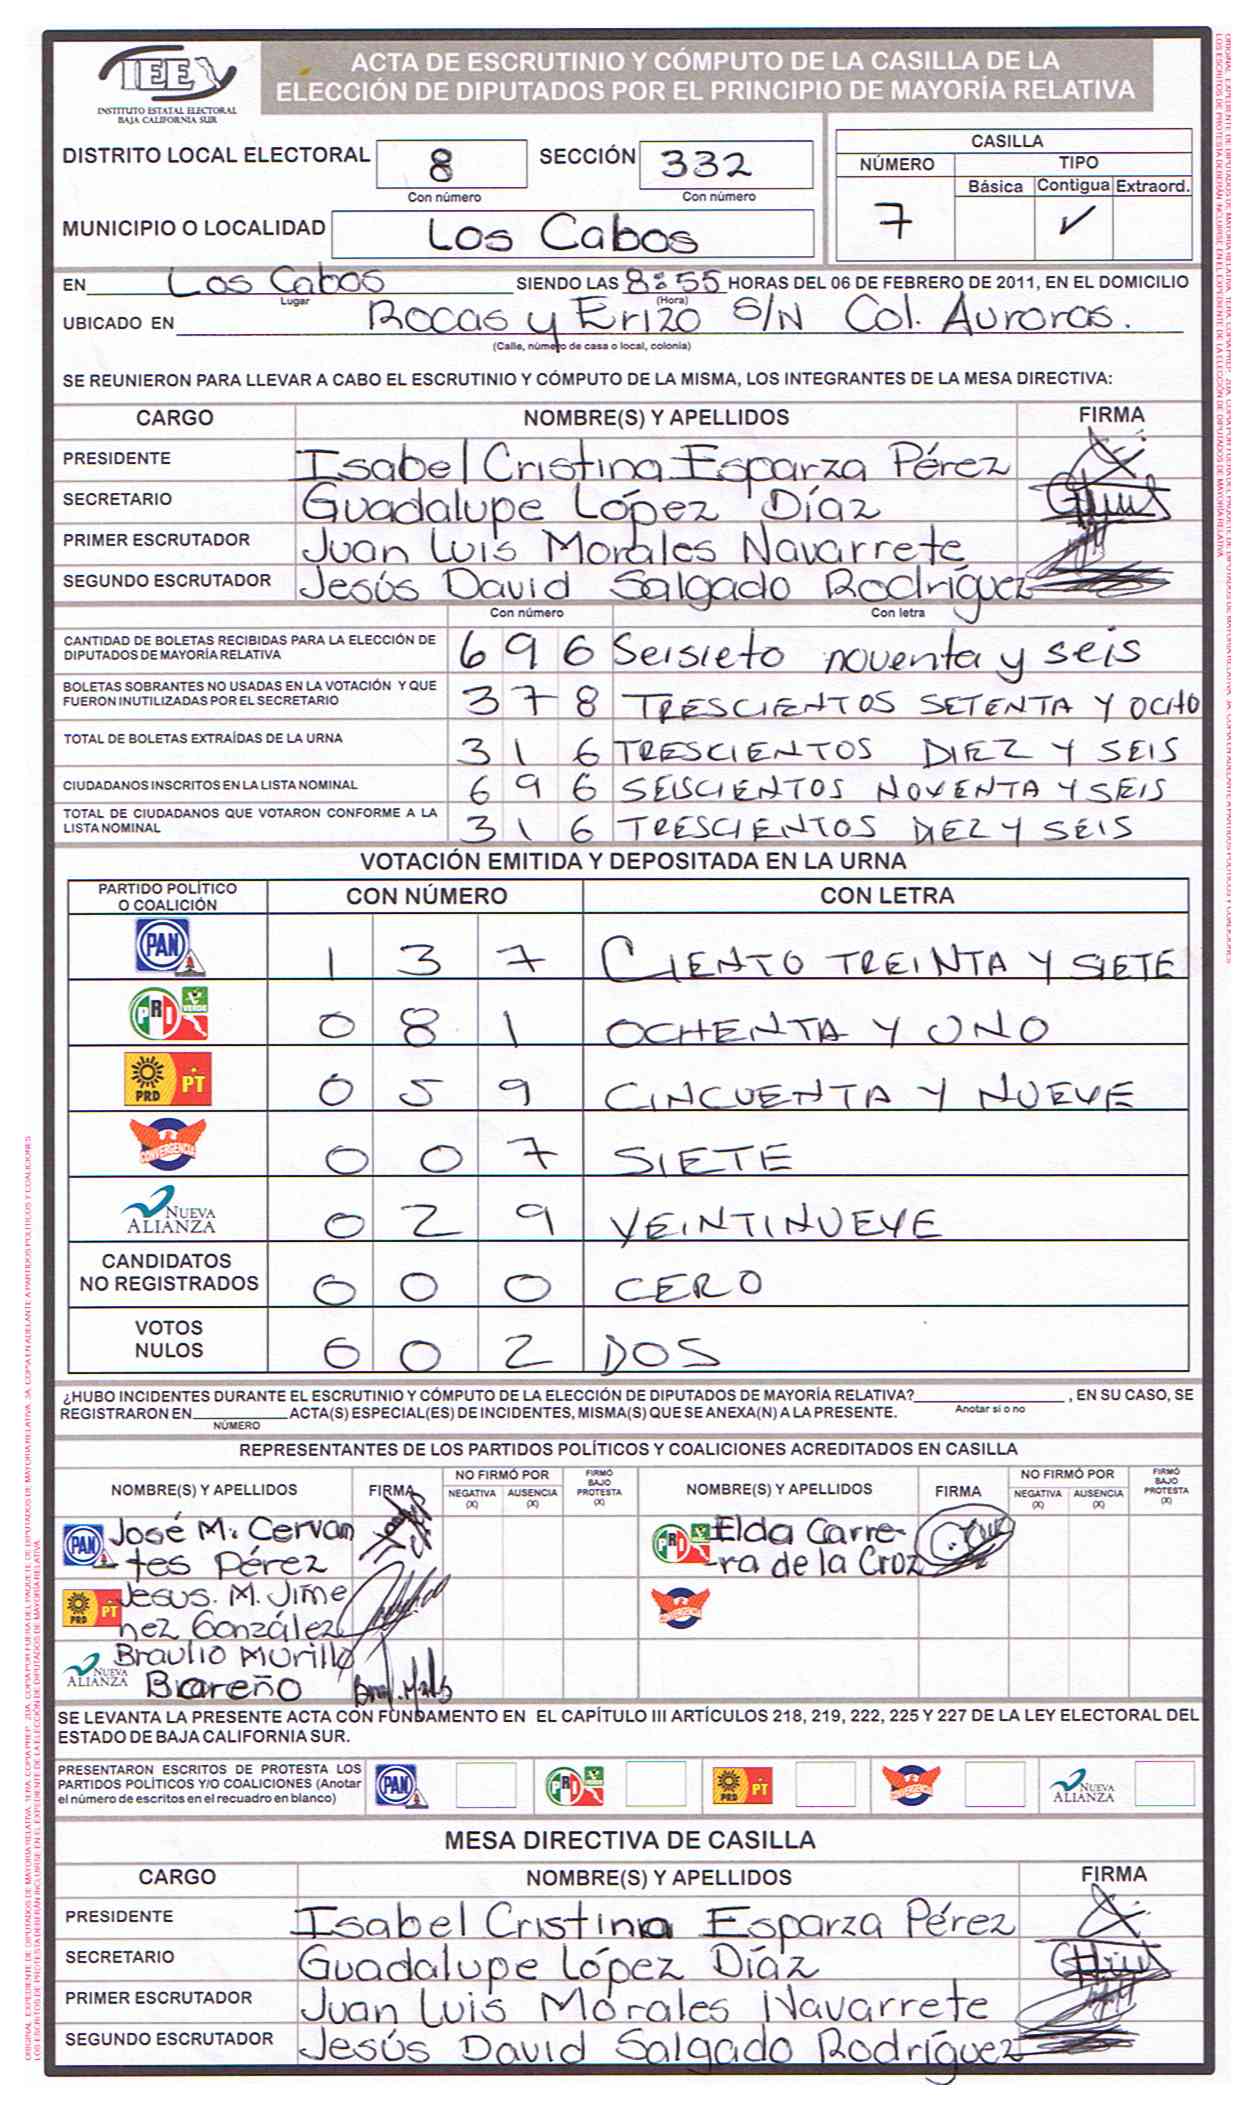 IEE
INSTITUTO ESTATAL ELECTORAL
BAJA CALIFORNIA SUR
ACTA DE ESCRUTINIO Y CÓMPUTO DE LA CASILLA DE LA
ELECCIÓN DE DIPUTADOS POR EL PRINCIPIO DE MAYORÍA RELATIVA
DISTRITO LOCAL ELECTORAL 8 SECCIÓN 332
Con número Con número
MUNICIPIO O LOCALIDAD Los Cabos
CASILLA
NÚMERO TIPO
Básica Contigua Extraord.
7 ✓
EN Los Cabos SIENDO LAS 8:55 HORAS DEL 06 DE FEBRERO DE 2011, EN EL DOMICILIO
Lugar (Hora)
UBICADO EN Rocas y Erizo S/N Col. Auroras.
(Calle, número de casa o local, colonia)
SE REUNIERON PARA LLEVAR A CABO EL ESCRUTINIO Y CÓMPUTO DE LA MISMA, LOS INTEGRANTES DE LA MESA DIRECTIVA:
CARGO NOMBRE(S) Y APELLIDOS FIRMA
PRESIDENTE Isabel Cristina Esparza Pérez
SECRETARIO Guadalupe López Díaz
PRIMER ESCRUTADOR Juan Luis Morales Navarrete
SEGUNDO ESCRUTADOR Jesús David Salgado Rodríguez
Con número Con letra
CANTIDAD DE BOLETAS RECIBIDAS PARA LA ELECCIÓN DE
DIPUTADOS DE MAYORÍA RELATIVA 696 Seisieto noventa y seis
BOLETAS SOBRANTES NO USADAS EN LA VOTACIÓN Y QUE
FUERON INUTILIZADAS POR EL SECRETARIO 378 TRESCIENTOS SETENTA Y OCHO
TOTAL DE BOLETAS EXTRAÍDAS DE LA URNA 316 TRESCIENTOS DIEZ Y SEIS
CIUDADANOS INSCRITOS EN LA LISTA NOMINAL 696 SEISCIENTOS NOVENTA Y SEIS
TOTAL DE CIUDADANOS QUE VOTARON CONFORME A LA
LISTA NOMINAL 316 TRESCIENTOS DIEZ Y SEIS
VOTACIÓN EMITIDA Y DEPOSITADA EN LA URNA
PARTIDO POLÍTICO
O COALICIÓN CON NÚMERO CON LETRA
PAN 1 3 7 CIENTO TREINTA Y SIETE
PRI VERDE 0 8 1 OCHENTA Y UNO
PRD PT 0 5 9 CINCUENTA Y NUEVE
CONVERGENCIA 0 0 7 SIETE
NUEVA ALIANZA 0 2 9 VEINTINUEVE
CANDIDATOS
NO REGISTRADOS 0 0 0 CERO
VOTOS
NULOS 0 0 2 DOS
¿HUBO INCIDENTES DURANTE EL ESCRUTINIO Y CÓMPUTO DE LA ELECCIÓN DE DIPUTADOS DE MAYORÍA RELATIVA? , EN SU CASO, SE
Anotar si o no
REGISTRARON EN ACTA(S) ESPECIAL(ES) DE INCIDENTES, MISMA(S) QUE SE ANEXA(N) A LA PRESENTE.
NÚMERO
REPRESENTANTES DE LOS PARTIDOS POLÍTICOS Y COALICIONES ACREDITADOS EN CASILLA
NOMBRE(S) Y APELLIDOS FIRMA NO FIRMÓ POR NEGATIVA (X) AUSENCIA (X) FIRMÓ BAJO PROTESTA (X) NOMBRE(S) Y APELLIDOS FIRMA NO FIRMÓ POR NEGATIVA (X) AUSENCIA (X) FIRMÓ BAJO PROTESTA (X)
PAN José M. Cervan
-tes Pérez
PRI VERDE Elda Carre-
-ra de la Cruz
PRD PT Jesus. M. Jime
nez González
CONVERGENCIA
NUEVA ALIANZA Braulio Murillo
Bareño
SE LEVANTA LA PRESENTE ACTA CON FUNDAMENTO EN EL CAPÍTULO III ARTÍCULOS 218, 219, 222, 225 Y 227 DE LA LEY ELECTORAL DEL
ESTADO DE BAJA CALIFORNIA SUR.
PRESENTARON ESCRITOS DE PROTESTA LOS
PARTIDOS POLÍTICOS Y/O COALICIONES (Anotar
el número de escritos en el recuadro en blanco)
PAN PRI VERDE PRD PT CONVERGENCIA NUEVA ALIANZA
MESA DIRECTIVA DE CASILLA
CARGO NOMBRE(S) Y APELLIDOS FIRMA
PRESIDENTE Isabel Cristina Esparza Pérez
SECRETARIO Guadalupe López Díaz
PRIMER ESCRUTADOR Juan Luis Morales Navarrete
SEGUNDO ESCRUTADOR Jesús David Salgado Rodríguez